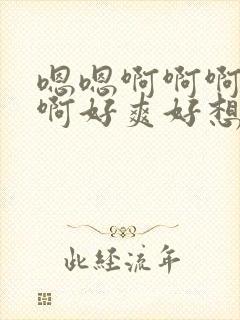 嗯嗯啊啊啊
啊好爽好想
此经流年